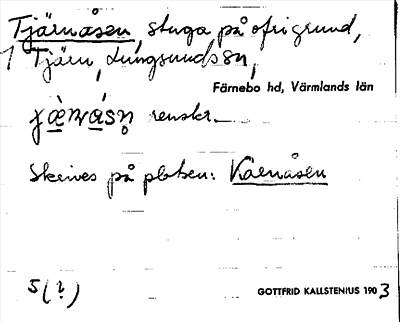 Tjärnåsen, stuga på ofri grund,
1 Tjärn, Lungsunds sn,
Färnebo hd, Värmlands län
renskr.
Skrives på platsen: Kärnåsen
5 (?)
GOTTFRID KALLSTENIUS 1903